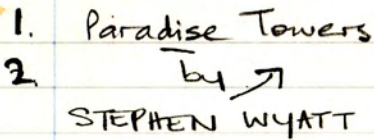 1. Paradise Towers
2. by
STEPHEN WYATT